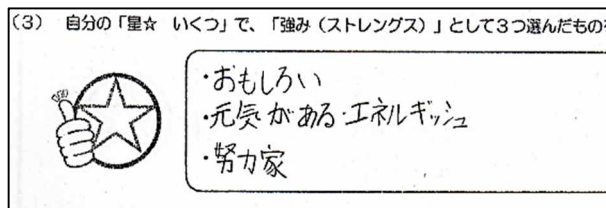 (3) 自分の「星☆ いくつ」で、「強み（ストレングス）」として3つ選んだもの
・おもしろい
・元気がある・エネルギッシュ
・努力家